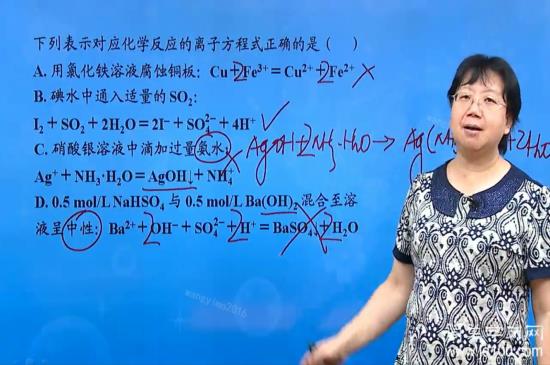 下列表示对应化学反应的离子方程式正确的是（ ）
A. 用氯化铁溶液腐蚀铜板：Cu+2Fe³⁺=Cu²⁺+2Fe²⁺ ×
B. 碘水中通入适量的SO₂:
I₂+SO₂+2H₂O=2I⁻+SO₄²⁻+4H⁺ ✓
C. 硝酸银溶液中滴加过量氨水: × AgOH+2NH₃·H₂O→Ag(NH 2H₂O
Ag⁺+NH₃·H₂O=AgOH↓+NH₄⁺
D. 0.5 mol/L NaHSO₄ 与 0.5 mol/L Ba(OH)₂混合至溶
液呈中性：Ba²⁺+2OH⁻+SO₄²⁻+2H⁺=BaSO₄↓+2H₂O